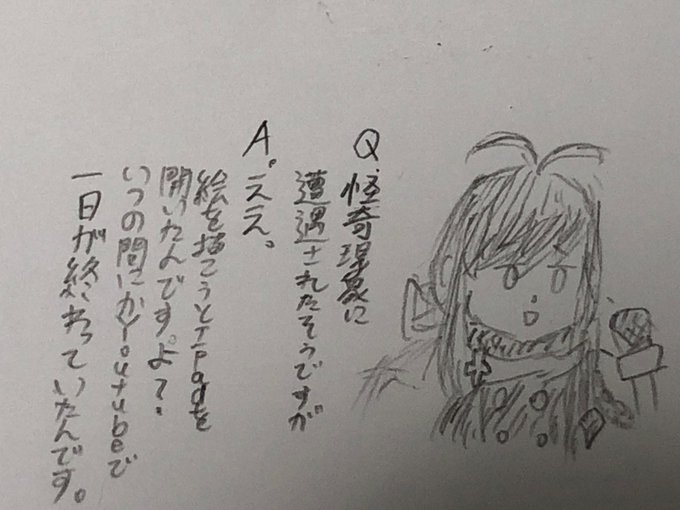 Q.怪奇現象に
遭遇されたそうですが
A.ええ。
絵を描こうとiPadを
開いたんです。よ?
いつの間にかYoutubeで
一日が終わっていたんです。